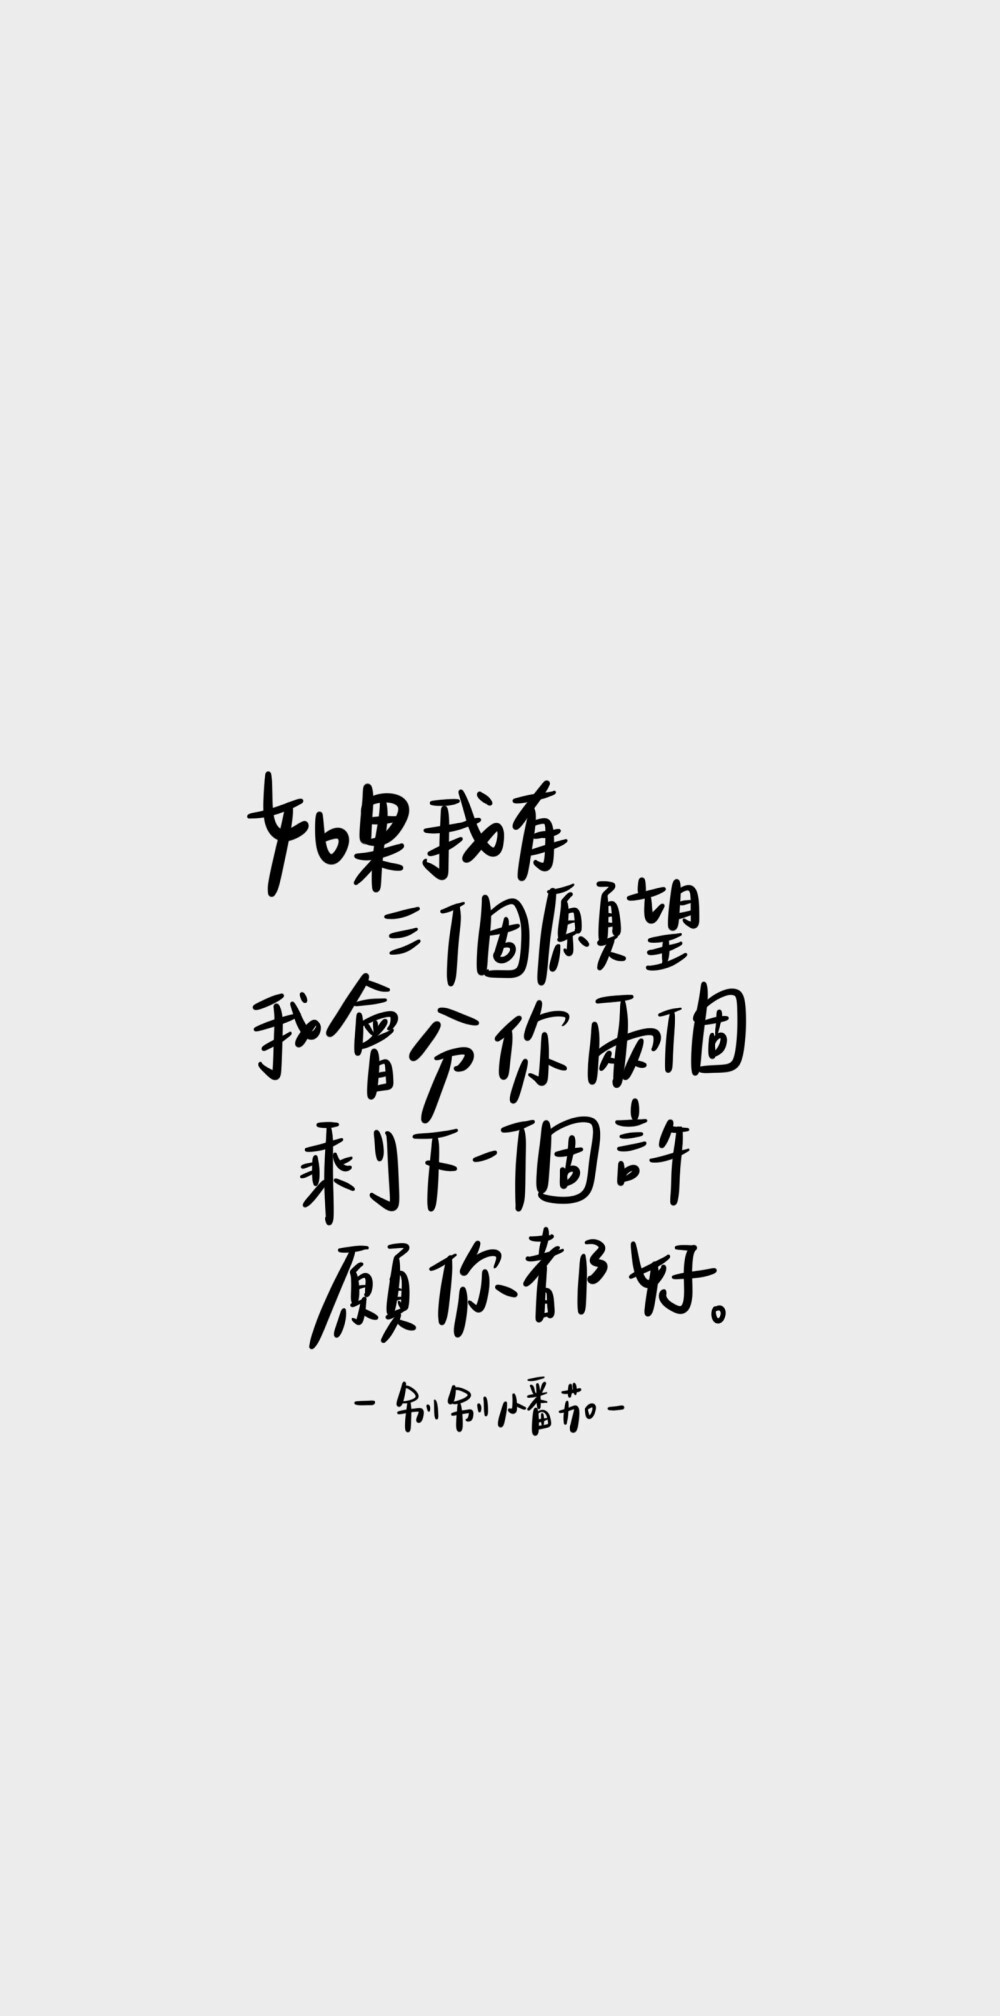 如果我有
三個願望
我會分你兩個
剩下一個許
願你都好。
-別別小番茄-